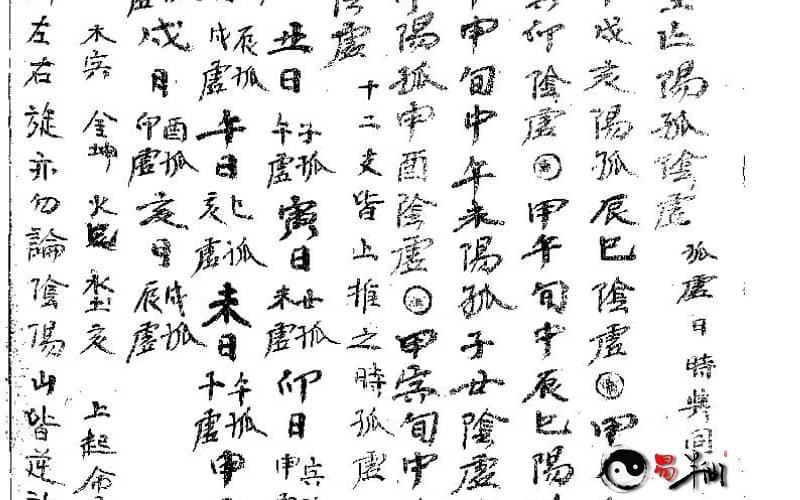 陽孤陰虛 孤虛日時與同
戌亥陽孤辰巳陰虛 甲
陰虛 甲午旬中辰巳陽
甲申旬中午未陽孤子丑陰虛
陽孤申酉陰虛 甲寅旬中
十二支皆上推之時孤虛
陰虛
丑日 子孤 午虛 寅日 丑孤 未虛 卯日 寅孤 申虛
辰孤 戌虛 午日 巳孤 亥虛 未日 午孤 子虛 申
戌日 酉孤 卯虛 亥日 戌孤 辰虛
木寅 金坤 火 水土亥 上起命
左右旋亦勿論陰陽山皆逆
易